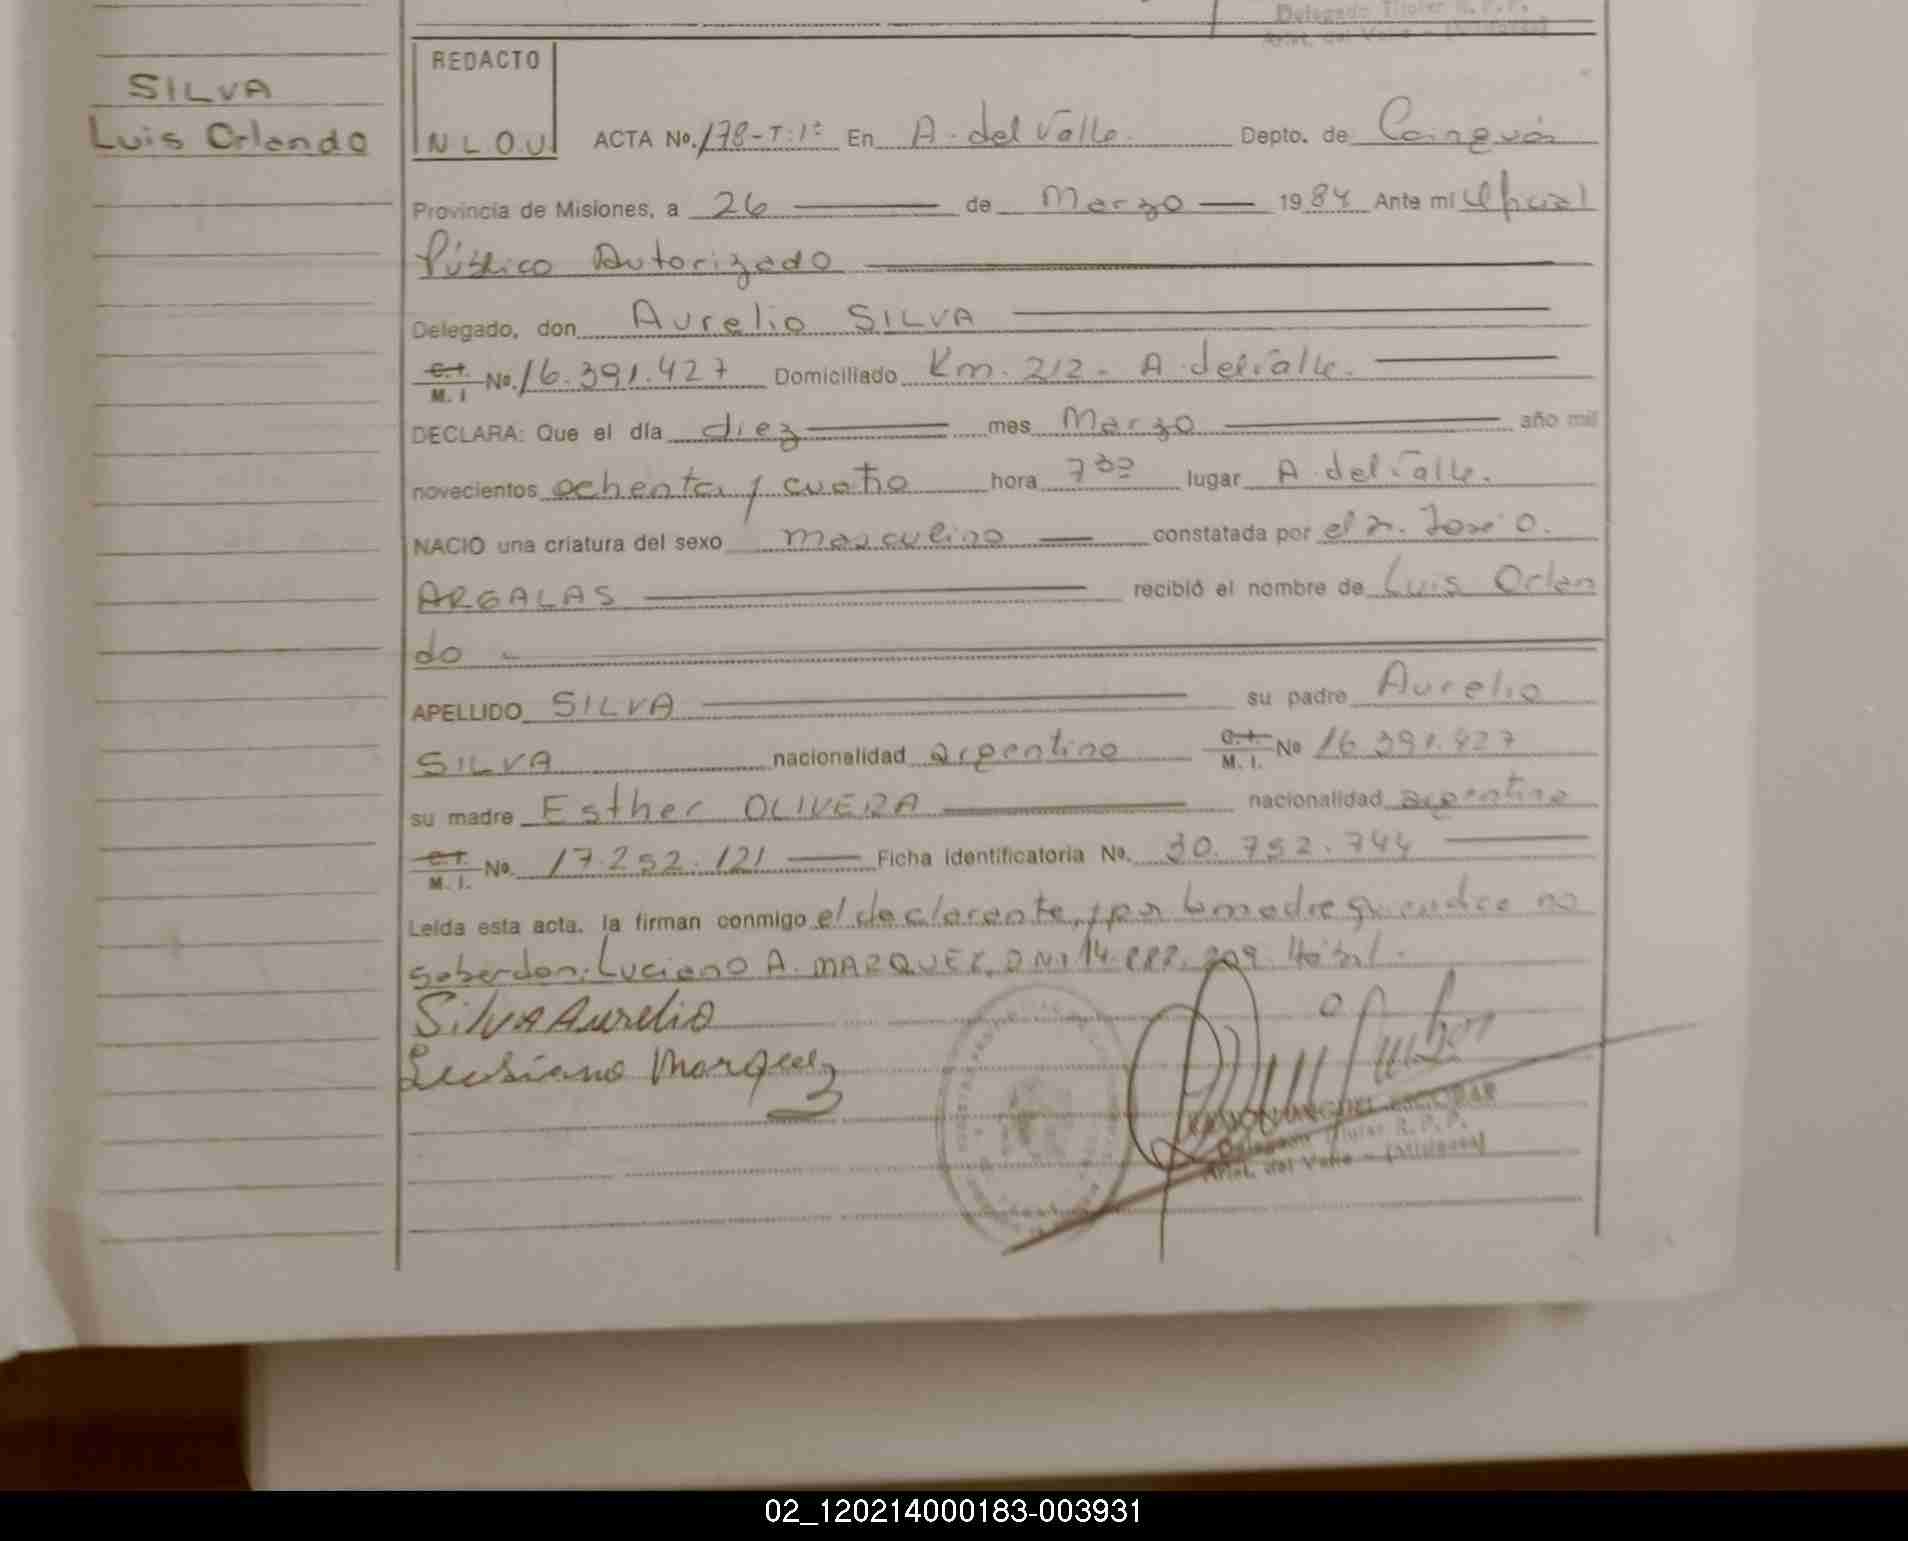 Delegado Titular R.P.P.
Arist. del Valle - (Misiones)
SILVA
Luis Orlando
REDACTO
N L O U
ACTA No. 178-T:1º En A. del Valle. Depto. de Cainguás
Provincia de Misiones, a 26 de Marzo 1984 Ante mi Oficial
Público Autorizado
Delegado, don Aurelio SILVA
C.I. M. I No. 16.391.427 Domiciliado Km. 212 - A. del Valle.
DECLARA: Que el día diez mes Marzo año mil
novecientos ochenta y cuatro hora 7 30 lugar A. del Valle.
NACIO una criatura del sexo masculino constatada por el Dr. José O.
ARGALAS recibió el nombre de Luis Orlan
do -
APELLIDO SILVA su padre Aurelio
SILVA nacionalidad argentino C.I. M. I. No 16.391.427
su madre Esther OLIVERA nacionalidad argentina
C.I. M. I. No. 17.252.121 Ficha identificatoria No. 30.752.744
Leída esta acta, la firman conmigo el declarante, y por la madre quien dice no
saber don: Luciano A. MARQUEZ, DNI 14. 209. Hábil.
Silva Aurelio
Lusiano Marquez
RAMON MIGUEL ESCOBAR
Delegado Titular R.P.P.
Arist. del Valle - (Misiones)
02_120214000183-003931